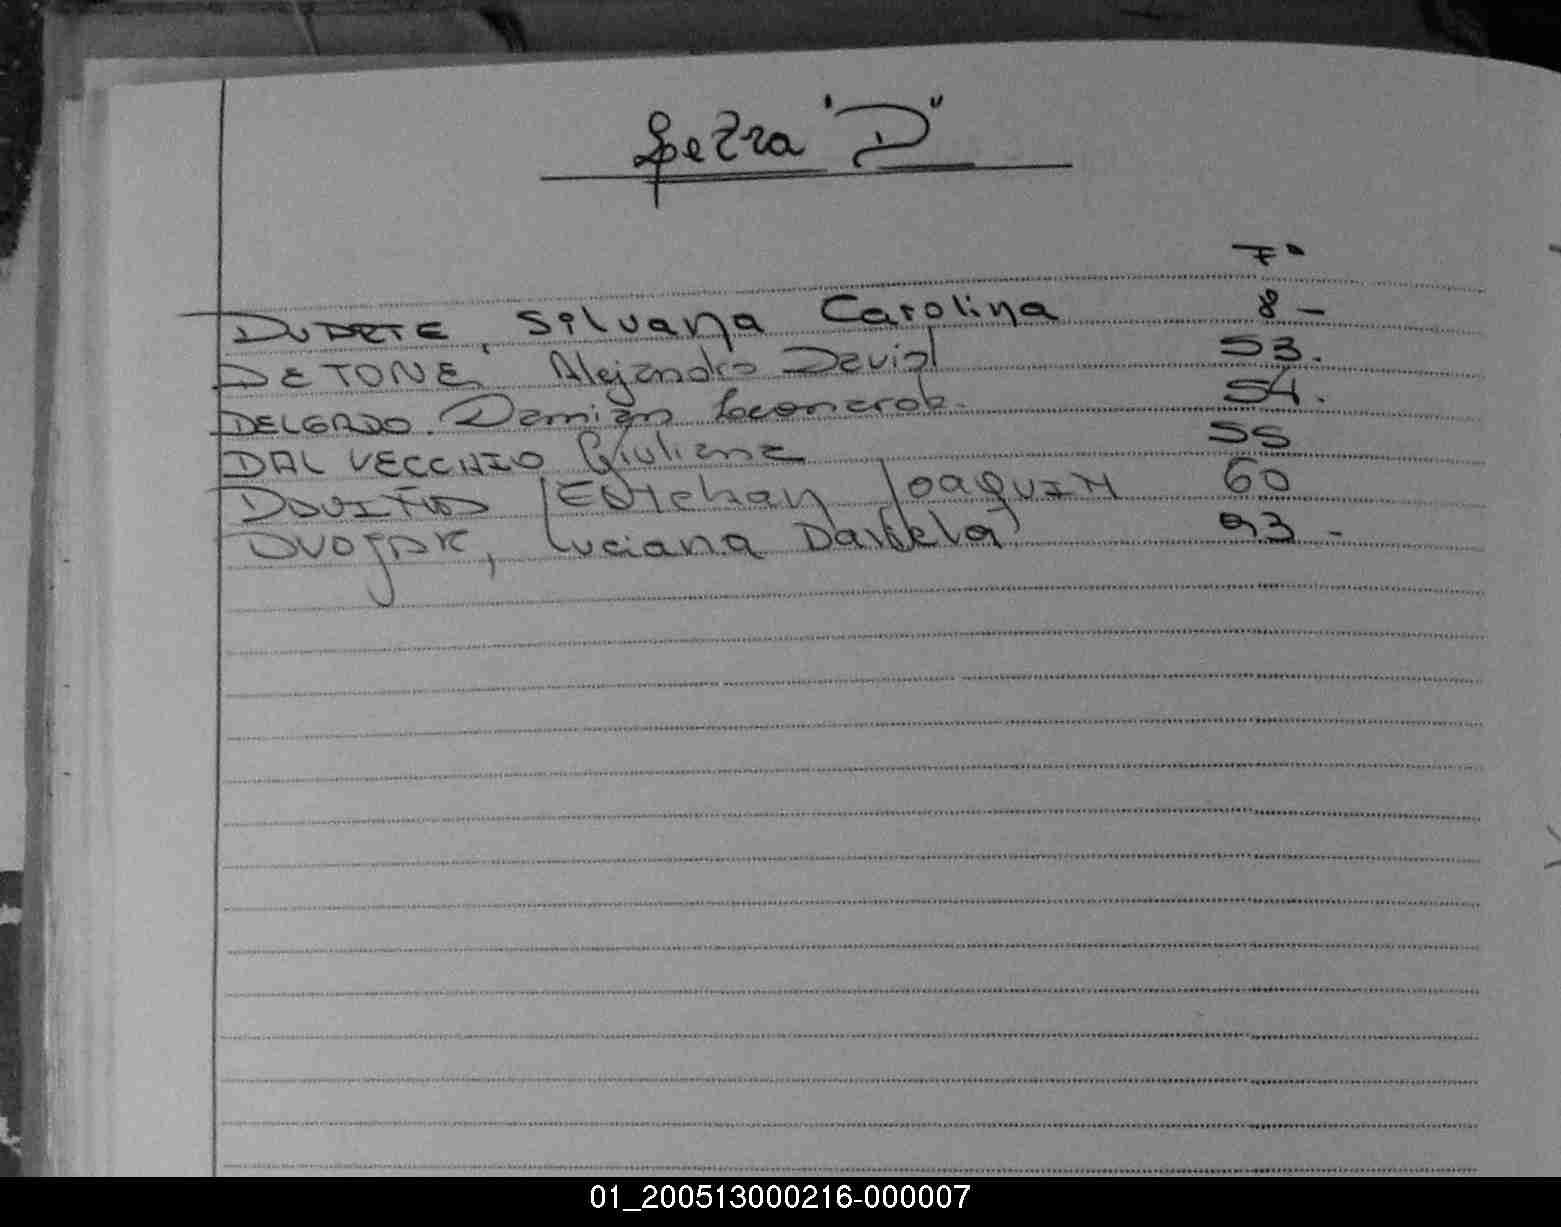 Letra "D"
Fº
DUARTE, Silvana Carolina 8 -
DETONE, Alejandro David 53.
DELGADO. Damián Leonardo. 54.
DAL VECCHIO Giuliana 55
Esteban Joaquin 60
DVOJAK, Luciana Daniela 93 -
01_200513000216-000007